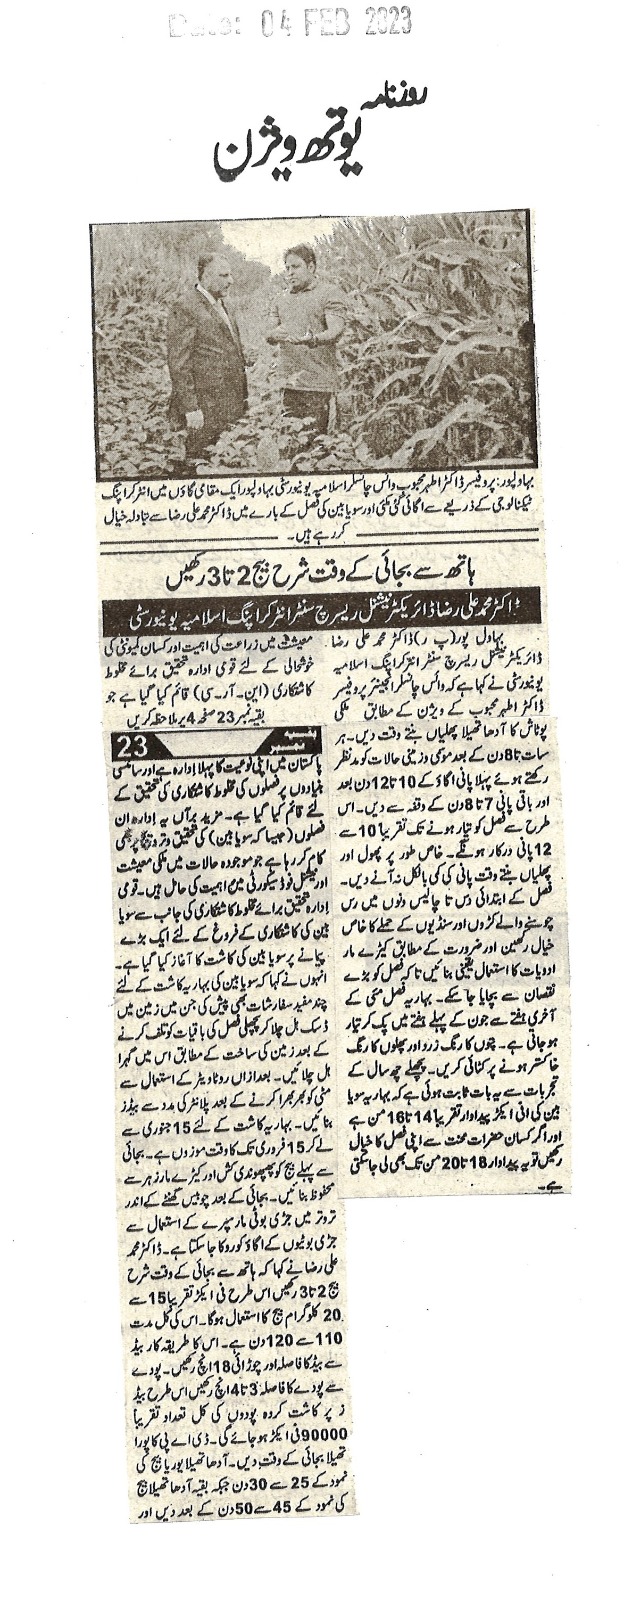 Date: 04 FEB 2023
روزنامہ
یوتھ ویژن
بہاولپور: پروفیسر ڈاکٹر اطہر محبوب وائس چانسلر اسلامیہ یونیورسٹی بہاولپور ایک مقامی گاؤں میں انٹرکراپنگ
ٹیکنالوجی کے ذریعے سے اگائی گئی مکئی اور سویابین کی فصل کے بارے میں ڈاکٹر محمد علی رضا سے تبادلہ خیال
کر رہے ہیں۔
ہاتھ سے بجائی کے وقت شرح بیج 2 تا 3 رکھیں
ڈاکٹر محمد علی رضا ڈائریکٹر نیشنل ریسرچ سنٹر انٹرکراپنگ اسلامیہ یونیورسٹی
بہاول پور (پ ر) ڈاکٹر محمد علی رضا
ڈائریکٹر نیشنل ریسرچ سنٹر انٹرکراپنگ اسلامیہ
یونیورسٹی نے کہا ہے کہ وائس چانسلر انجینئر پروفیسر
ڈاکٹر اطہر محبوب کے ویژن کے مطابق ملکی
معیشت میں زراعت کی اہمیت اور کسان کمیونٹی کی
خوشحالی کے لئے قومی ادارہ تحقیق برائے مخلوط
کاشتکاری (این۔آر۔سی) قائم کیا گیا ہے جو
بقیہ نمبر 23 صفحہ 4 پر ملاحظہ کریں
بقیہ نمبر 23
پاکستان میں اپنی نوعیت کا پہلا ادارہ ہے اور سائنسی
بنیادوں پر فصلوں کی مخلوط کاشتکاری کی تحقیق کے
لئے قائم کیا گیا ہے۔ مزید برآں یہ ادارہ ان
فصلوں (جیسا کہ سویابین) کی تحقیق و ترویج پر بھی
کام کر رہا ہے جو موجودہ حالات میں ملکی معیشت
اور نیشنل فوڈ سیکورٹی میں اہمیت کی حامل ہیں۔ قومی
ادارہ تحقیق برائے مخلوط کاشتکاری کی جانب سے سویا
بین کی کاشتکاری کے فروغ کے لئے ایک بڑے
پیمانے پر سویابین کی کاشت کا آغاز کیا گیا ہے۔
انہوں نے کہا کہ سویابین کی بہاریہ کاشت کے لئے
چند مفید سفارشات بھی پیش کی جن میں زمین میں
ڈسک ہل چلا کر پچھلی فصل کی باقیات کو تلف کرنے
کے بعد زمین کی ساخت کے مطابق اس میں گہرا
ہل چلائیں۔ بعد ازاں روٹاویٹر کے استعمال سے
مٹی کو بھر بھرا کرنے کے بعد پلانٹر کی مدد سے بیڈز
بنائیں۔ بہاریہ کاشت کے لئے 15 جنوری سے
لے کر 15 فروری تک کا وقت موزوں ہے۔ بجائی
سے پہلے بیج کو پھپھوندی کش اور کیڑے مار زہر سے
محفوظ بنائیں۔ بجائی کے بعد چوبیس گھنٹے کے اندر
تروتر میں جڑی بوٹی مار سپرے کے استعمال سے
جڑی بوٹیوں کے اگاؤ کو روکا جا سکتا ہے۔ ڈاکٹر محمد
علی رضا نے کہا کہ ہاتھ سے بجائی کے وقت شرح
بیج 2 تا 3 رکھیں اس طرح فی ایکڑ تقریبا 15 سے
20 کلوگرام بیج کا استعمال ہوگا۔ اس کی کل مدت
110 سے 120 دن ہے۔ اس کا طریقہ کار بیڈ
سے بیڈ کا فاصلہ اور چوڑائی 18 انچ رکھیں۔ پودے
سے پودے کا فاصلہ 3 تا 4 انچ رکھیں اس طرح بیڈ
ز پر کاشت کردہ پودوں کی کل تعداد تقریباً
90000 فی ایکڑ ہو جائے گی۔ ڈی اے پی کا پورا
تھیلا بجائی کے وقت دیں۔ آدھا تھیلا یوریا بیج کی
نمود کے 25 سے 30 دن جبکہ بقیہ آدھا تھیلا بیج
کی نمود کے 45 سے 50 دن کے بعد دیں اور
پوٹاش کا آدھا تھیلا پھلیاں بنتے وقت دیں۔ ہر
سات تا 8 دن کے بعد موسمی و زمینی حالات کو مدنظر
رکھتے ہوئے پہلا پانی اگاؤ کے 10 تا 12 دن بعد
اور باقی پانی 7 تا 8 دن کے وقفہ سے دیں۔ اس
طرح سے فصل کو تیار ہونے تک تقریبا 10 سے
12 پانی درکار ہونگے۔ خاص طور پر پھول اور
پھلیاں بنتے وقت پانی کی کمی بالکل نہ آنے دیں۔
فصل کے ابتدائی دس تا چالیس دنوں میں رس
چوسنے والے کڑوں اور سنڈیوں کے حملے کا خاص
خیال رکھیں اور ضرورت کے مطابق کیڑے مار
ادویات کا استعمال یقینی بنائیں تاکہ فصل کو بڑے
نقصان سے بچایا جا سکے۔ بہاریہ فصل مئی کے
آخری ہفتے سے جون کے پہلے ہفتے میں پک کر تیار
ہو جاتی ہے۔ پتوں کا رنگ زرد اور پھلوں کا رنگ
خاکستر ہونے پر کٹائی کریں۔ پچھلے چھ سال کے
تجربات سے یہ بات ثابت ہوئی ہے کہ بہاریہ سویا
بین کی فی ایکڑ پیداوار تقریبا 14 تا 16 من ہے
اور اگر کسان حضرات محنت سے اپنی فصل کا خیال
رکھیں تو یہ پیداوار 18 تا 20 من تک بھی لی جا سکتی
ہے۔